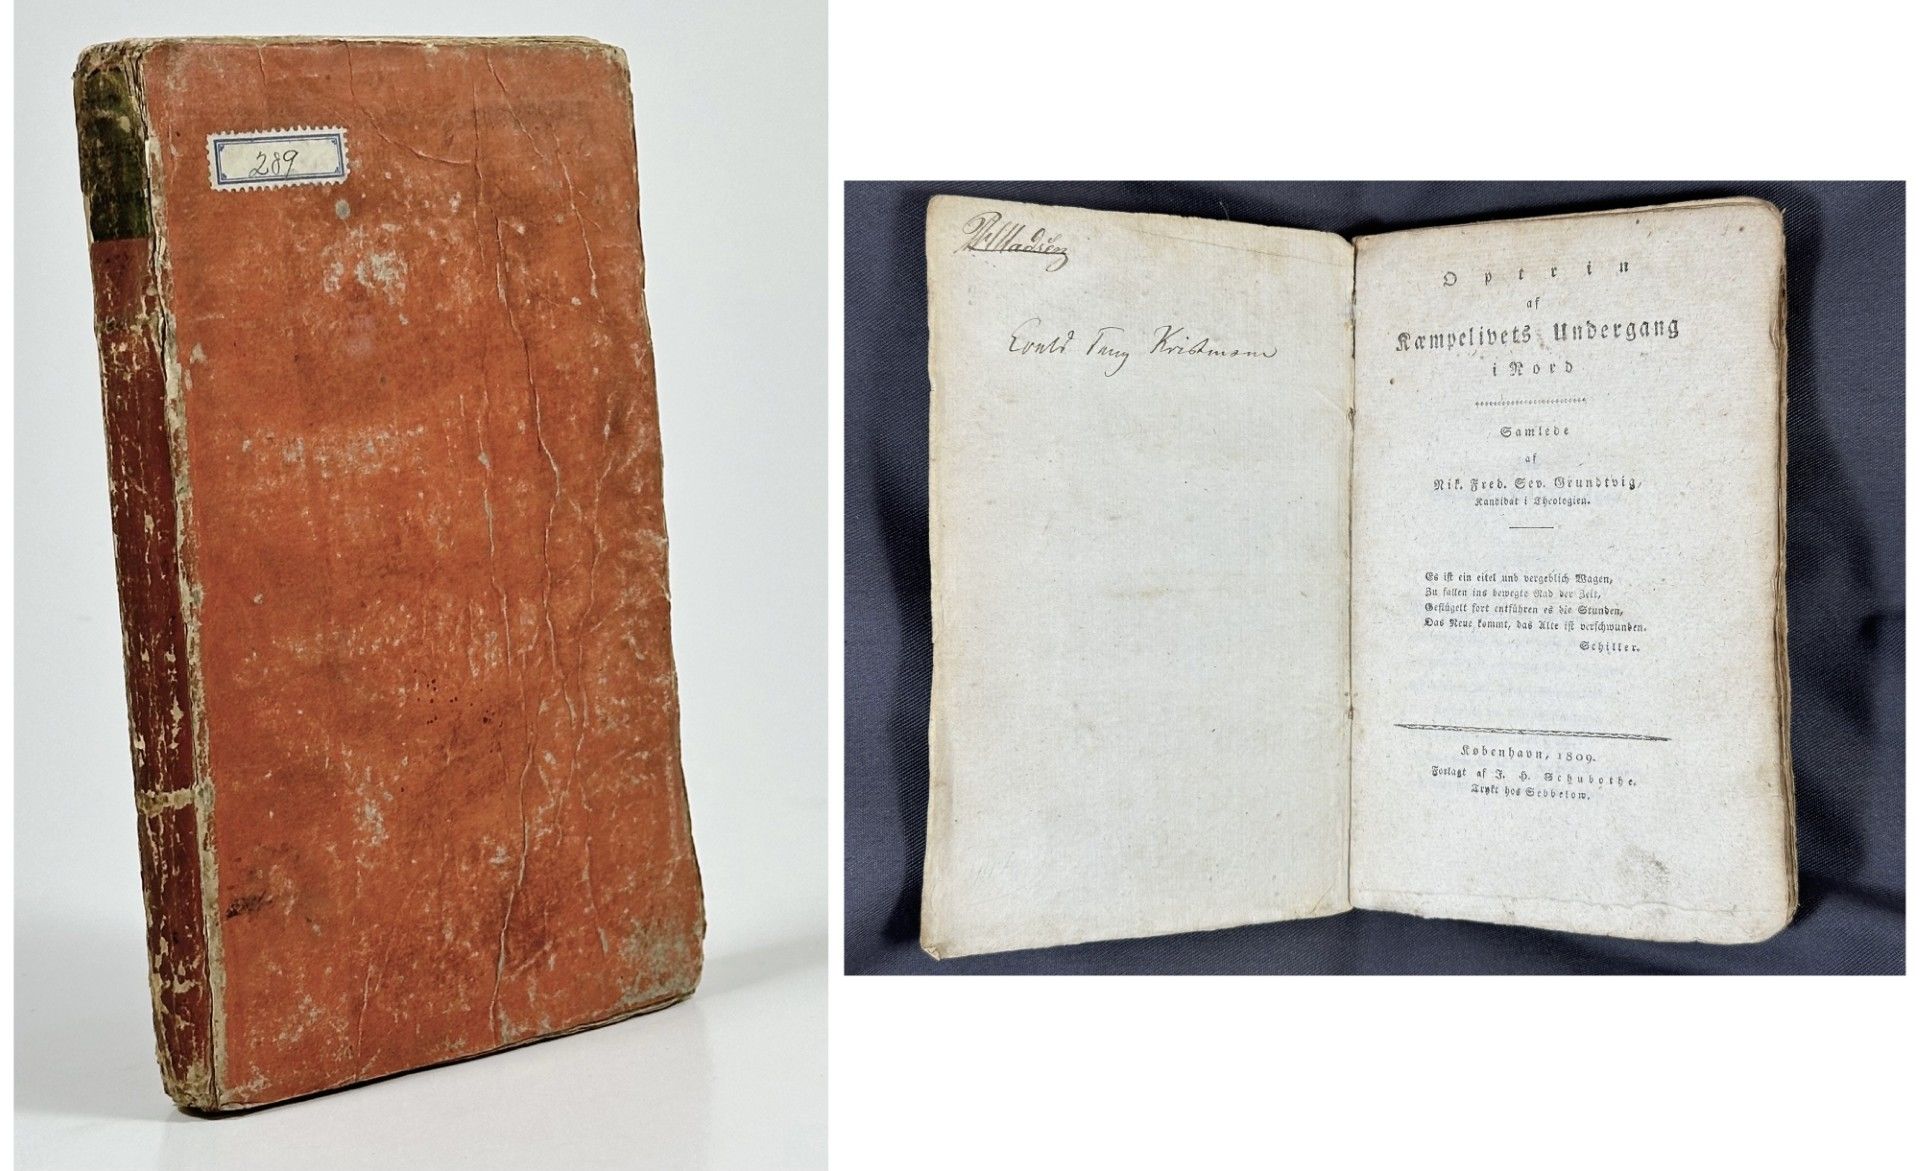 289
Madsen
Evald Tang Kristensen
Optrin
af
Kæmpelivets Undergang
i Nord
Samlede
af
Nik. Fred. Sev. Grundtvig,
Kandidat i Theologien.
Es ist ein eitel und vergeblich Wagen,
Zu fallen ins bewegte Rad der Zeit,
Geflügelt fort entführen es die Stunden,
Das Neue kommt, das Alte ist verschwunden.
Schiller.
København, 1809.
Forlagt af J. H. Schubothe.
Trykt hos Sebbelow.